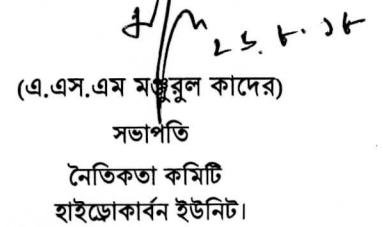 ২৩.৮.১৮
(এ.এস.এম মঞ্জুরুল কাদের)
সভাপতি
নৈতিকতা কমিটি
হাইড্রোকার্বন ইউনিট।